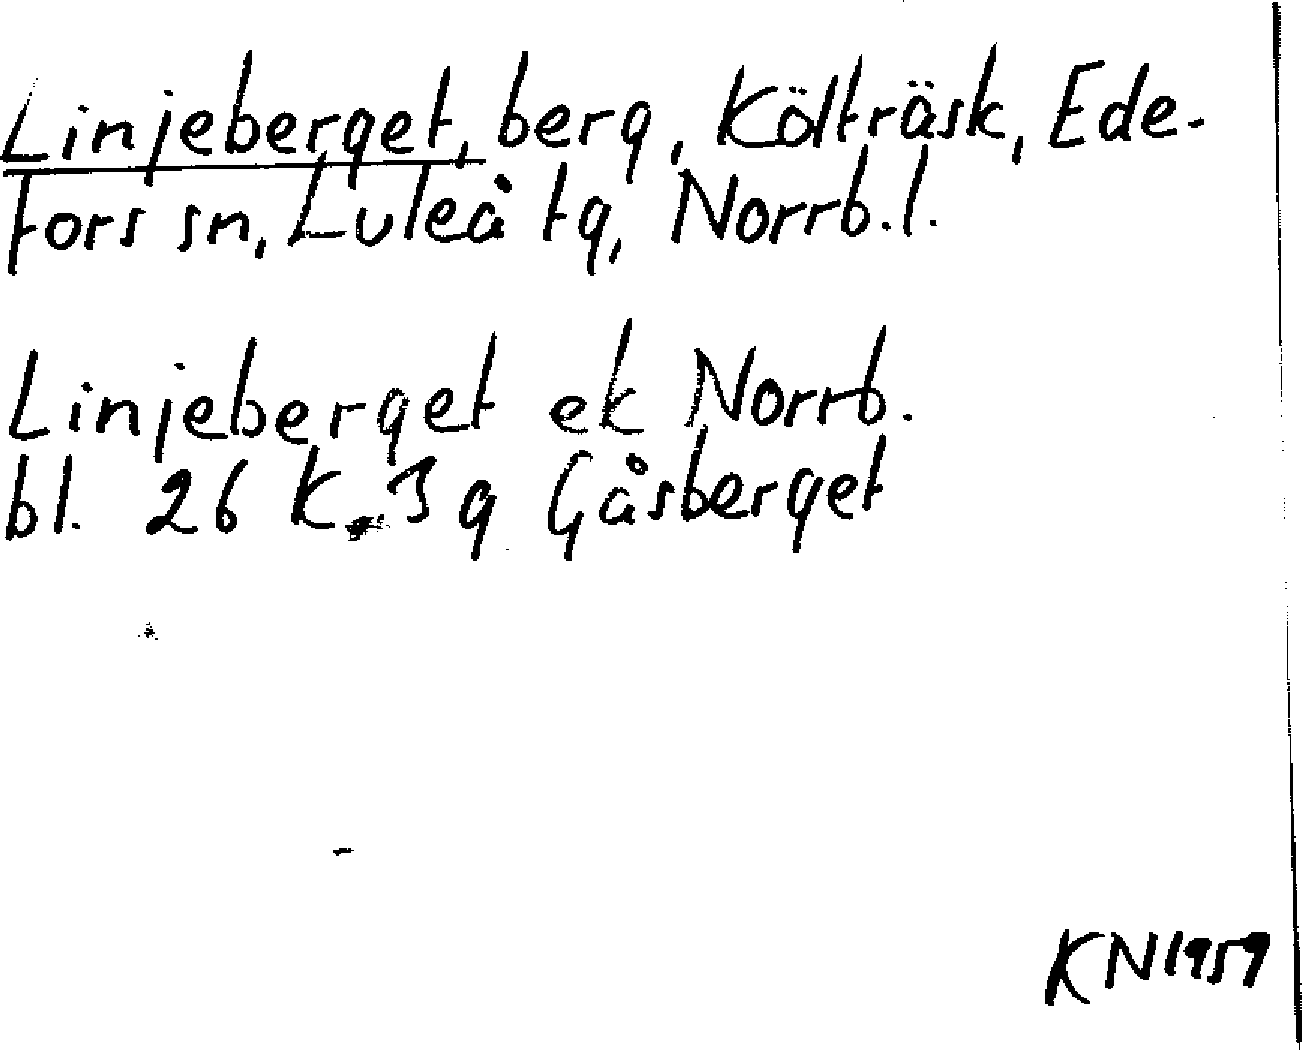 Linjeberget, berg, Költräsk, Ede-
fors sn, Luleå tg, Norrb.l.
Linjeberget ek Norrb.
bl. 26 K 3g Gåsberget
KN1959